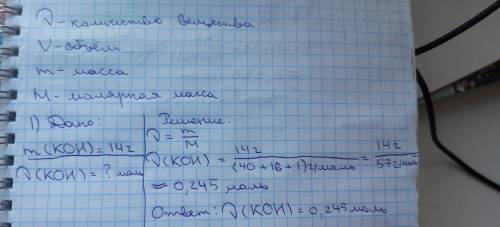 ν - количество вещества
V - объём
m - масса
M - молярная масса
1) Дано:
m (KOH) = 14г
ν(KOH) = ? моль
Решение.
ν = m/M
ν(KOH) = 14г/(40 + 16 + 1)г/моль = 14г/57г/моль
= 0,245 моль
Ответ: ν(KOH) = 0,245моль